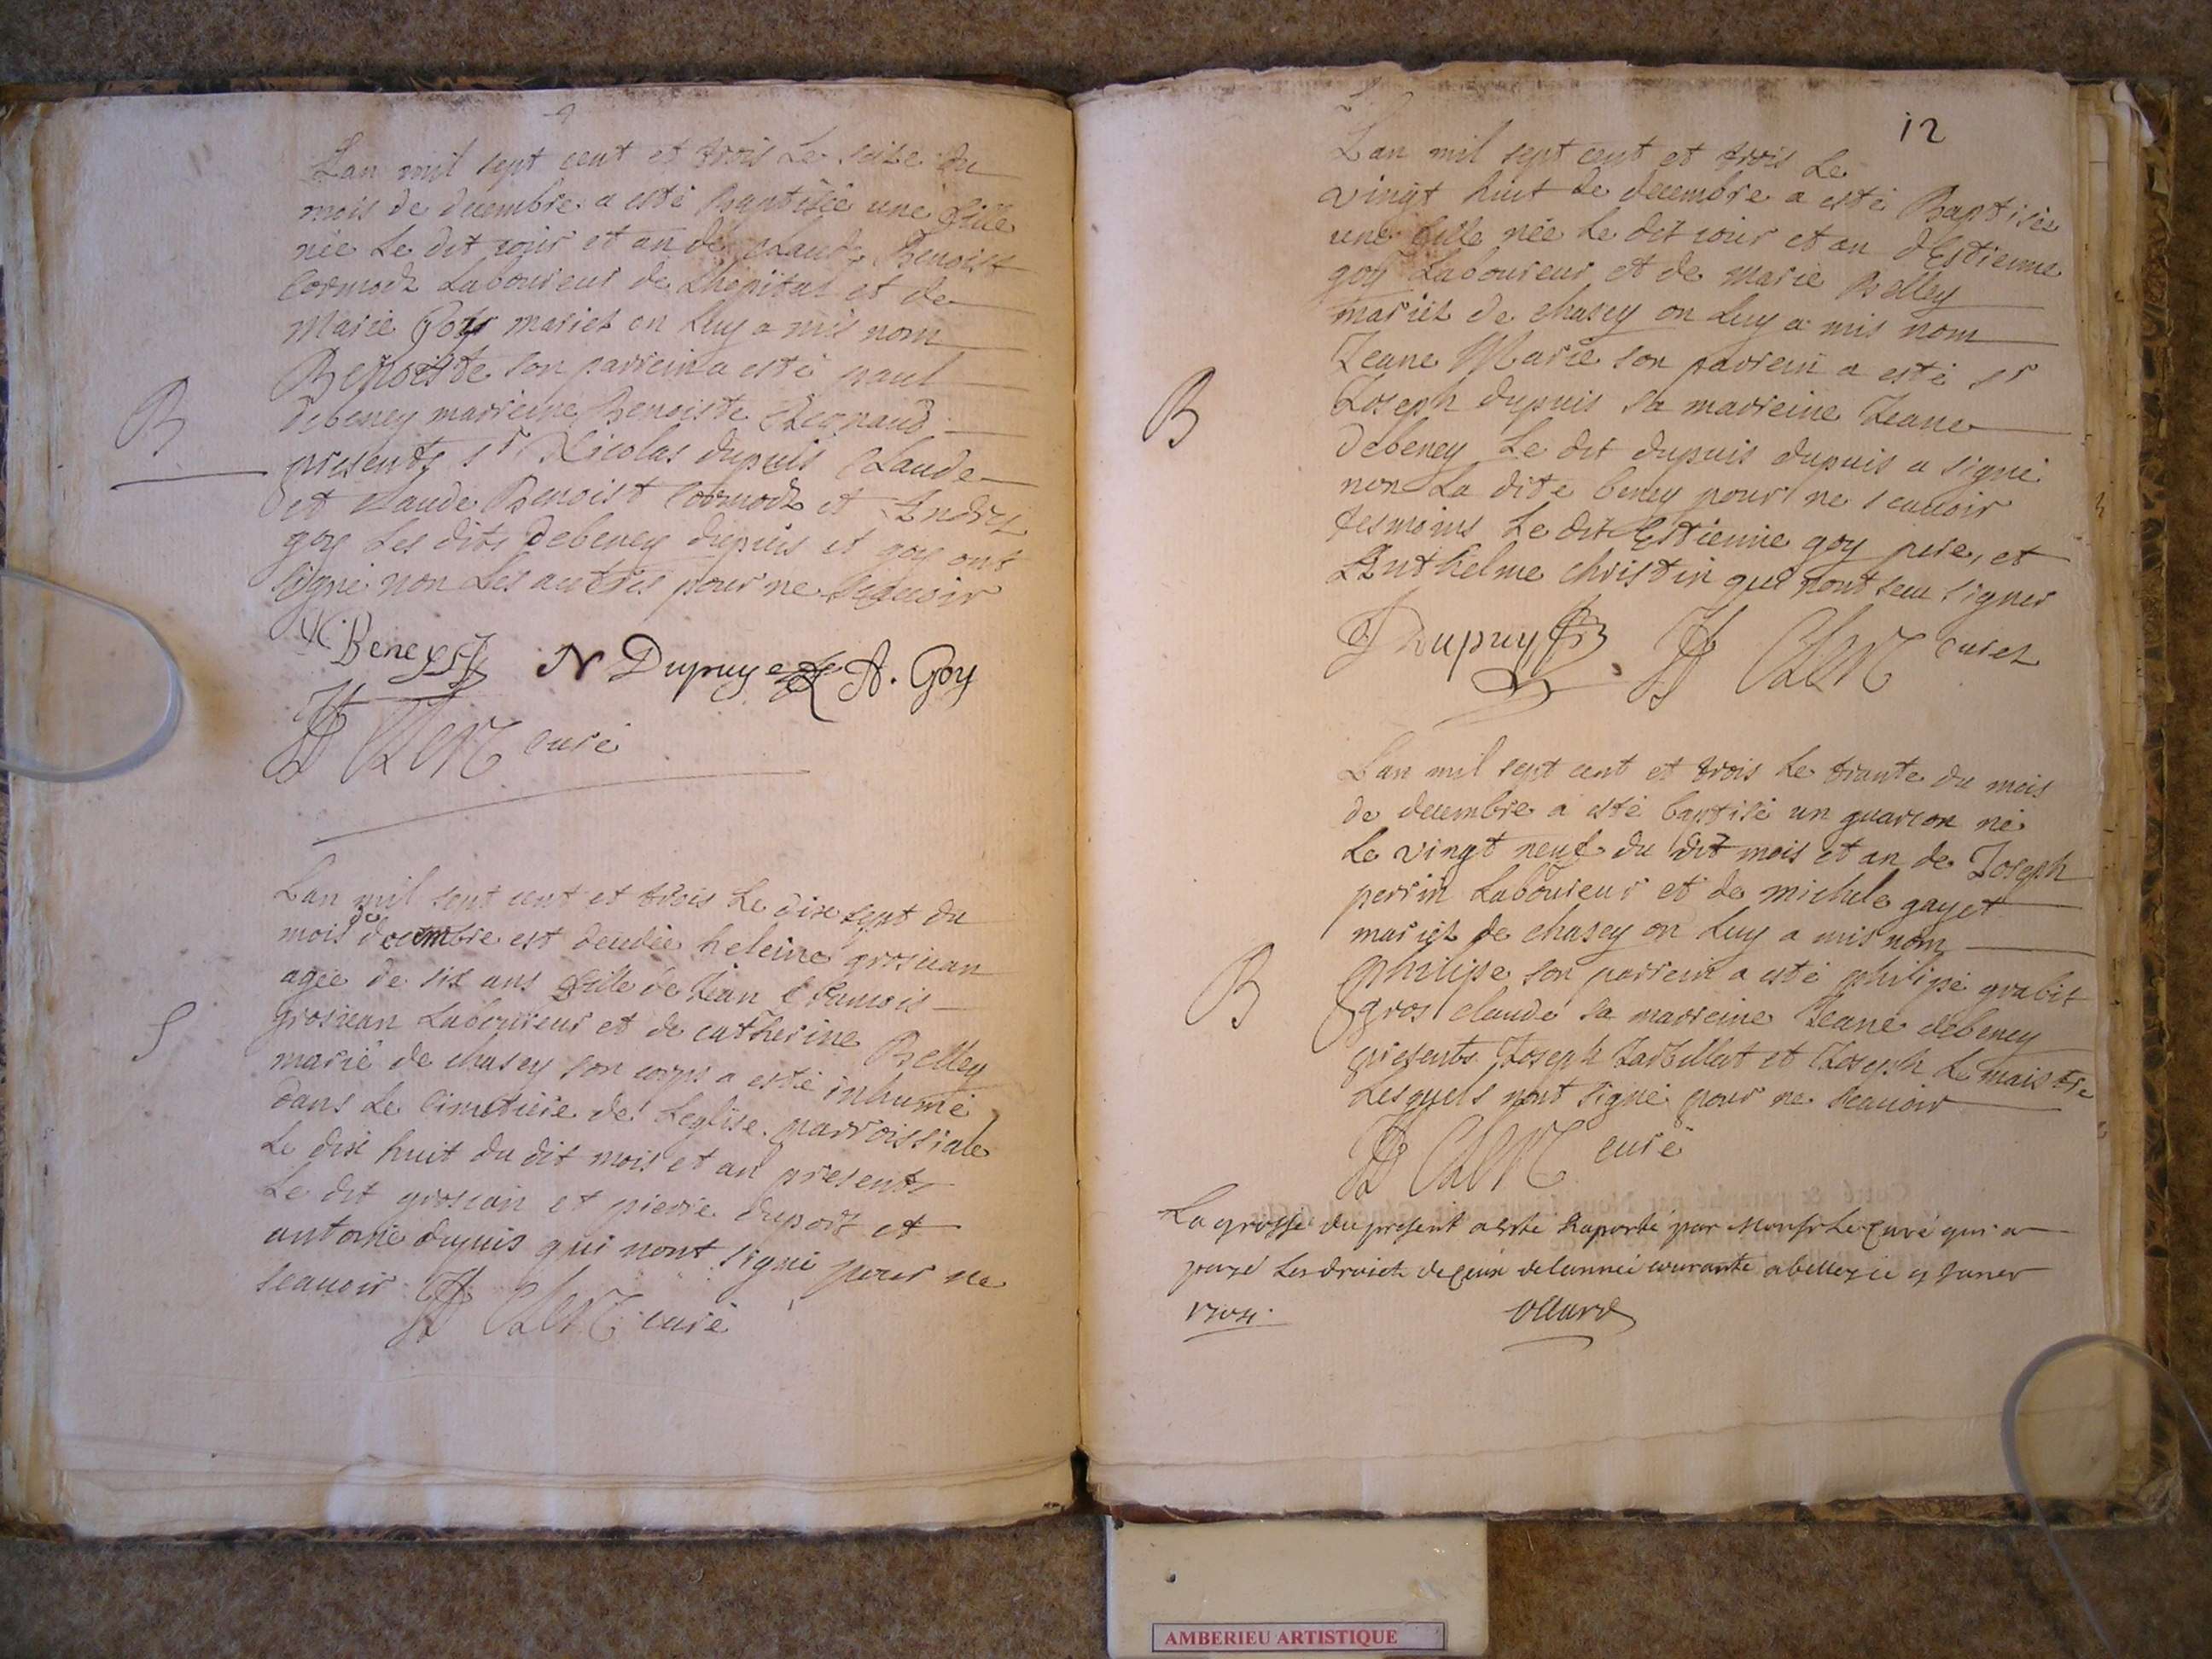 Lan mil sept cent et trois Le seize du
mois de decembre a esté Baptisée une fille
née Le dit iour et an de Claude Benoist
Cormod Laboureur de Lhopital et de
Marie Goy mariez on Luy a mis nom
Benoiste son parrein a esté paul
debeney marreine Benoiste
B
presents sr Nicolas dupuis Claude
et Claude Benoist Cormod et Andre
goy Les dits debeney dupuis et goy ont
signé non Les autres pour ne scauoir
Beney N Dupuy A. Goy
Clerc curé
Lan mil sept cent et trois Le dix sept du
mois de decembre est decedée heleine grosiean
agée de six ans fille de Jean francois
grosiean Laboureur et de catherine Belley
S
marié de chasey son corps a esté inhumé
dans Le cimetière de Leglise parroissiale
Le dix huit du dit mois et an presents
Le dit grosiean et pierre duport et
antoine dupuis qui nont signé pour ne
scauoir Clerc curé
12
Lan mil sept cent et trois Le
vingt huit de decembre a esté Baptisée
une fille née Le dit iour et an dEstienne
goy Laboureur et de Marie Belley
mariez de chasey on Luy a mis nom
Jeane Marie son parrein a esté sr
B
Joseph dupuis sa marreine Jeane
debeney Le dit dupuis dupuis a signé
non La dite beney pour ne scauoir
tesmoins Le dit Estienne goy pere, et
Anthelme christin qui nont sceu signer
J Dupuy Clerc curez
Lan mil sept cent et trois Le trante du mois
de decembre a esté baptisé un guarcon né
Le vingt neuf du dit mois et an de Joseph
perrin Laboureur et de michele gayet
mariez de chasey on Luy a mis nom
B
philipe son parrein a esté philipe grabit
gros claude sa marreine Jeane debeney
presents Joseph Tarbillat et Joseph Le maistre
Lesquels nont signé pour ne scauoir
Clerc curé
La grosse du present a esté Raporté par Monsr Le Curé qui a
payé Les droicts de Ceux de lannée courante a belley ce 9 Janer
1704.